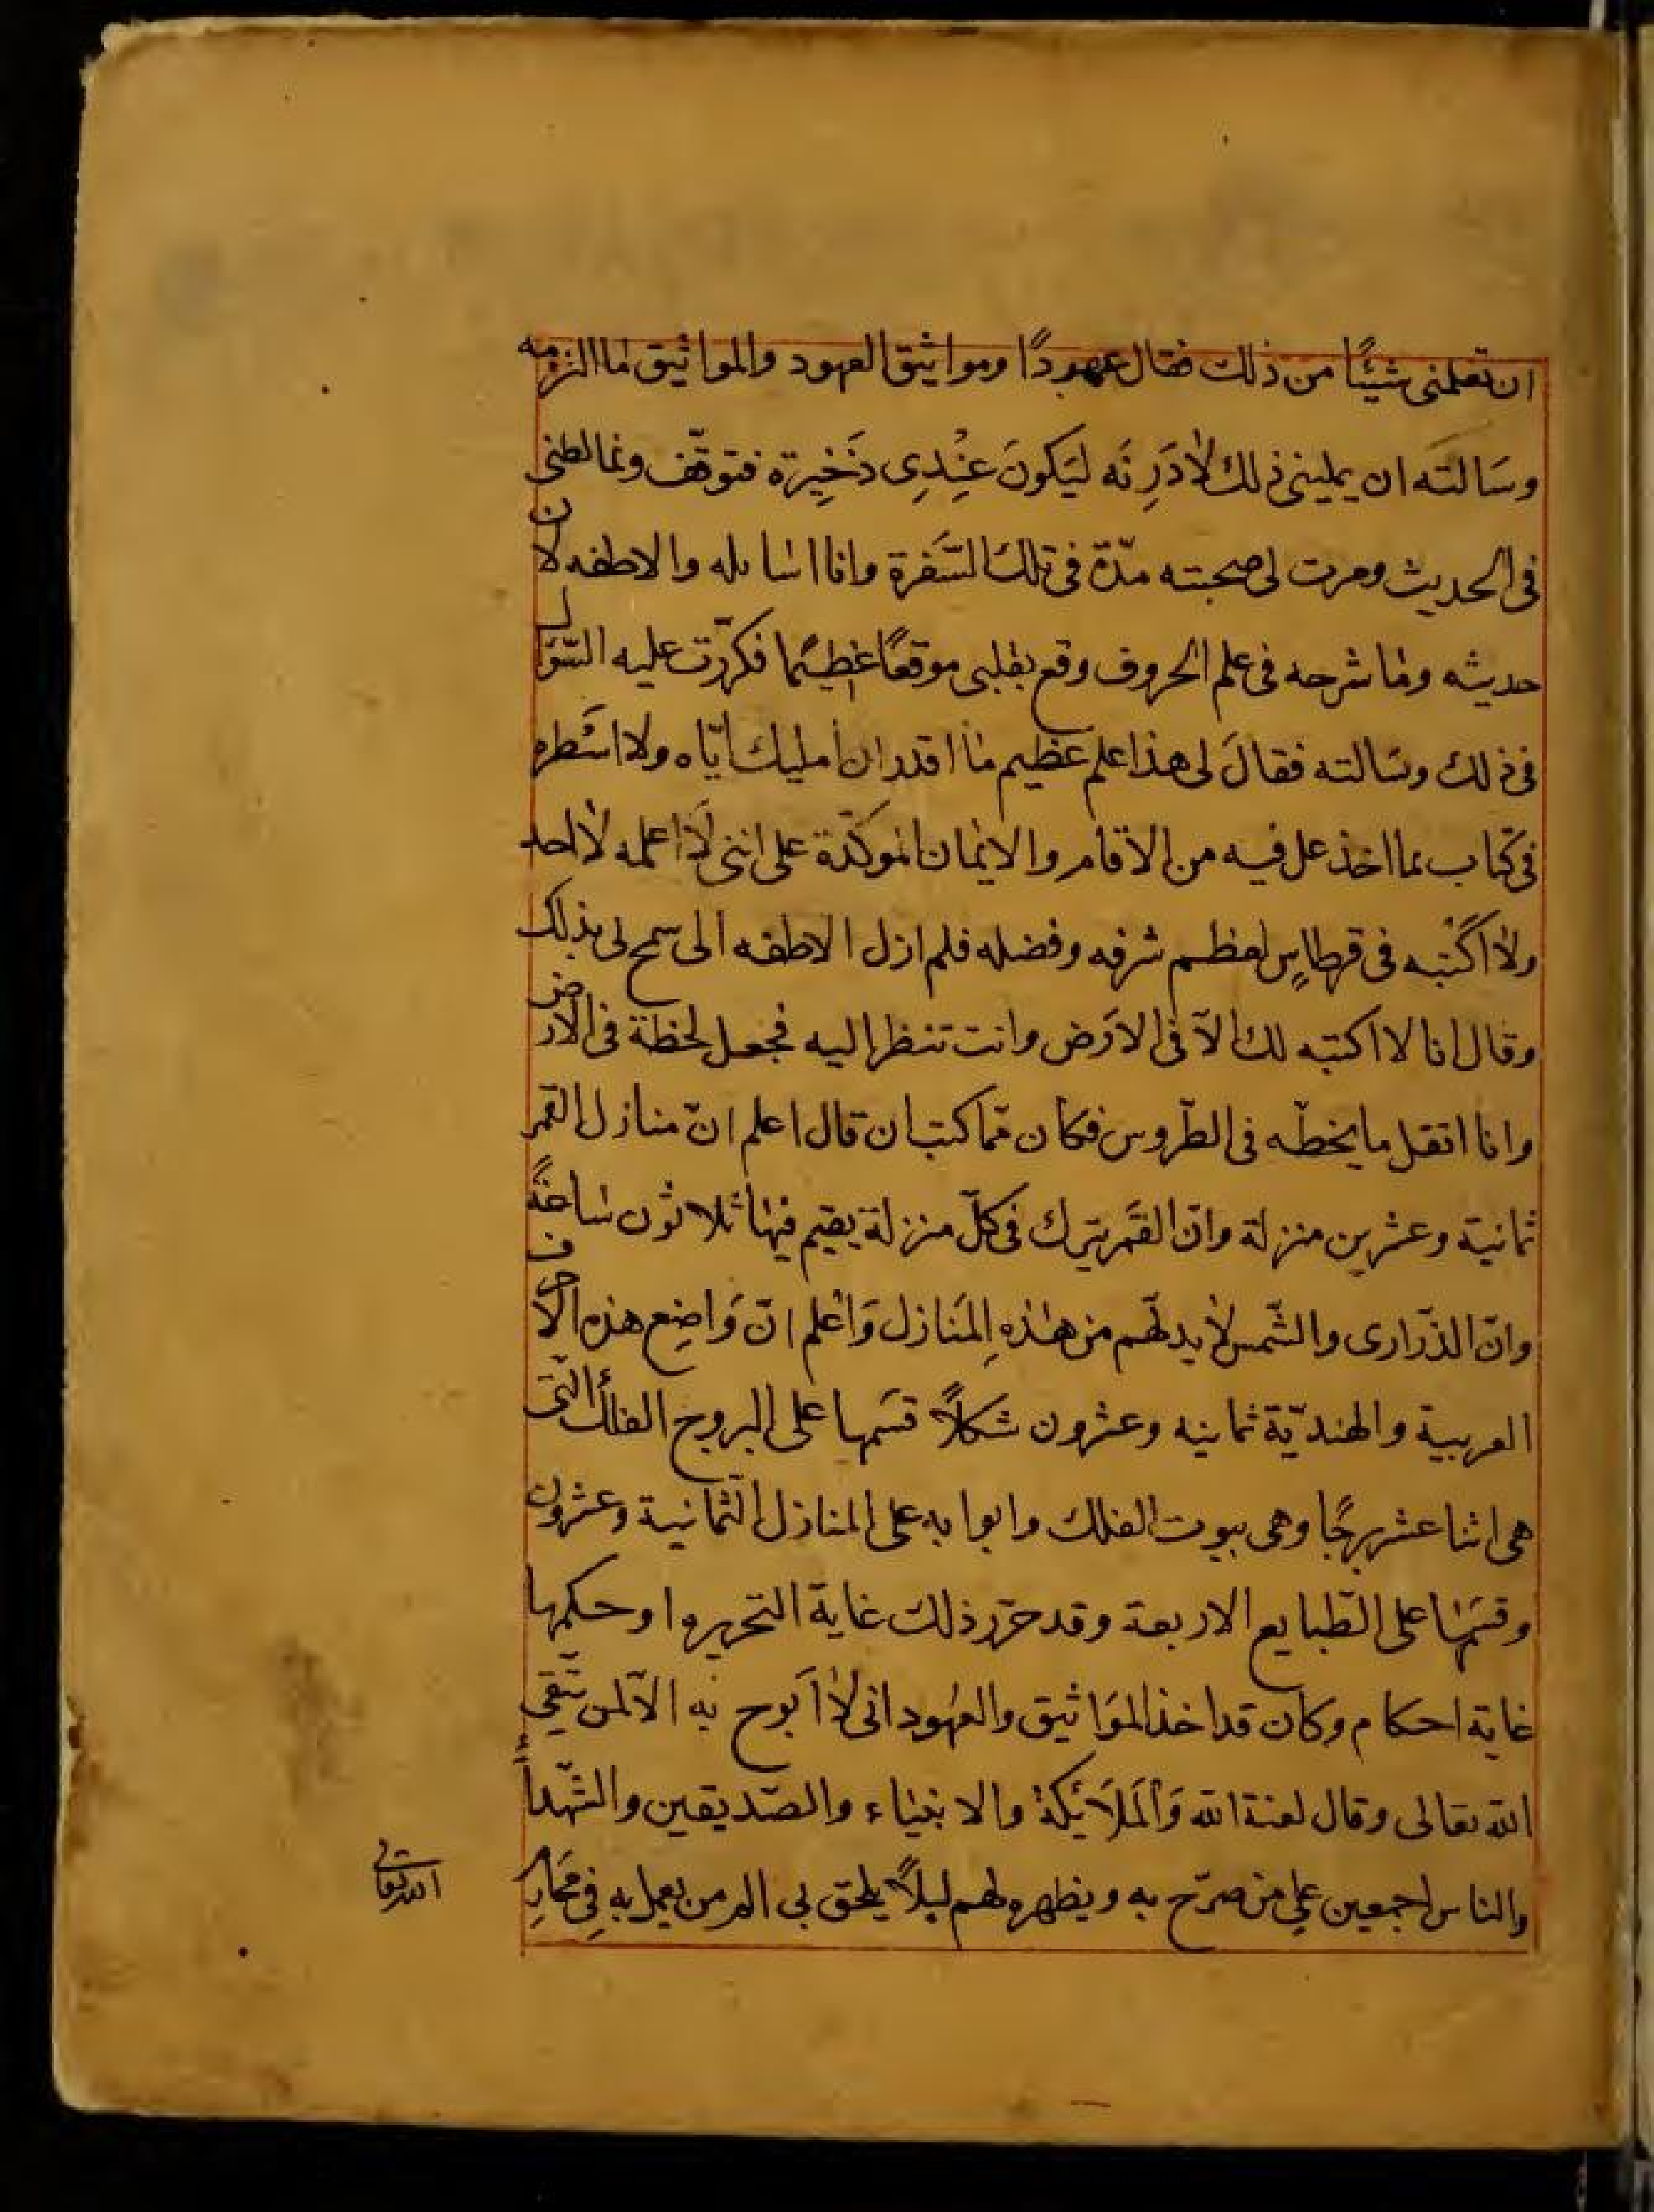 ان تعلمنى شيئًا من ذلك فقال عهودًا ومواثيق العهود والمواثيق لما الزمه
وسَالته ان يملينى ذلك لادَرِنَه ليَكونَ عنْدِى ذَخِيرَة فتوقّف وغالطنى
فى الحديث ومرت لى صحبته مدّة فى تلك السَّفرة وانا اسايله والاطفه لان
حديثه وما شرحه فى علم الحروف وقع بقلبى موقعًا عَظيمًا فكرّرت عليه السّؤال
فى ذلك وسَالته فقالَ لى هذا علم عَظيم ما اقدر ان امليك ايّاه ولا اسَطره
فى كتاب بما اخذ على فيه من الاقام والايمان الموكّدة على اننى لا اعلمه لاحد
ولا اكتبه فى قرطاسٍ لعظم شرفه وفضله فلم ازل الاطفه الى سمح لى بذلك
وقال انا لا اكتبه لك الّا فى الارَض وانت تنظر اليه فجعل لخطة فى الارض
وانا انقل ما يخطّه فى الطّروس فكان ممّا كتب ان قال اعلم انّ منازل القمر
ثمانية وعشرين منزلة وانّ القَمر يترك فى كلّ منزلة يقيم فيها ثلاثون ساعَةً
وانّ الذّرارى والشّمس لا بد لهّم من هذهِ المَنازل وَاعلم انّ وَاضِع هذه الاحرف
العربية والهنديّة ثمانيه وعشرون شكلاً قسَمها على البروج الفلك الّتى
هى اثنا عشر برجًا وهى بيوت الفلك وابوابه على المنازل الثّمانية وعشرون
وقسَمها على الطّبايع الاربعة وقد حرّر ذلك غاية التحرير واحكمها
غاية احكام وكان قد اخذ الموَاثيق والعهُود انى لا اَبوح به الّا لمن تّقى
الله تعالى وقال لعنة الله وَالمَلَائكة والانبياء والصّديقين والشّهدا
والناس اجمعين على من صرّح به ويظهره لهم ليلاً يلحق بى الم من يعمل به فى مَحَارم
الله تعالى